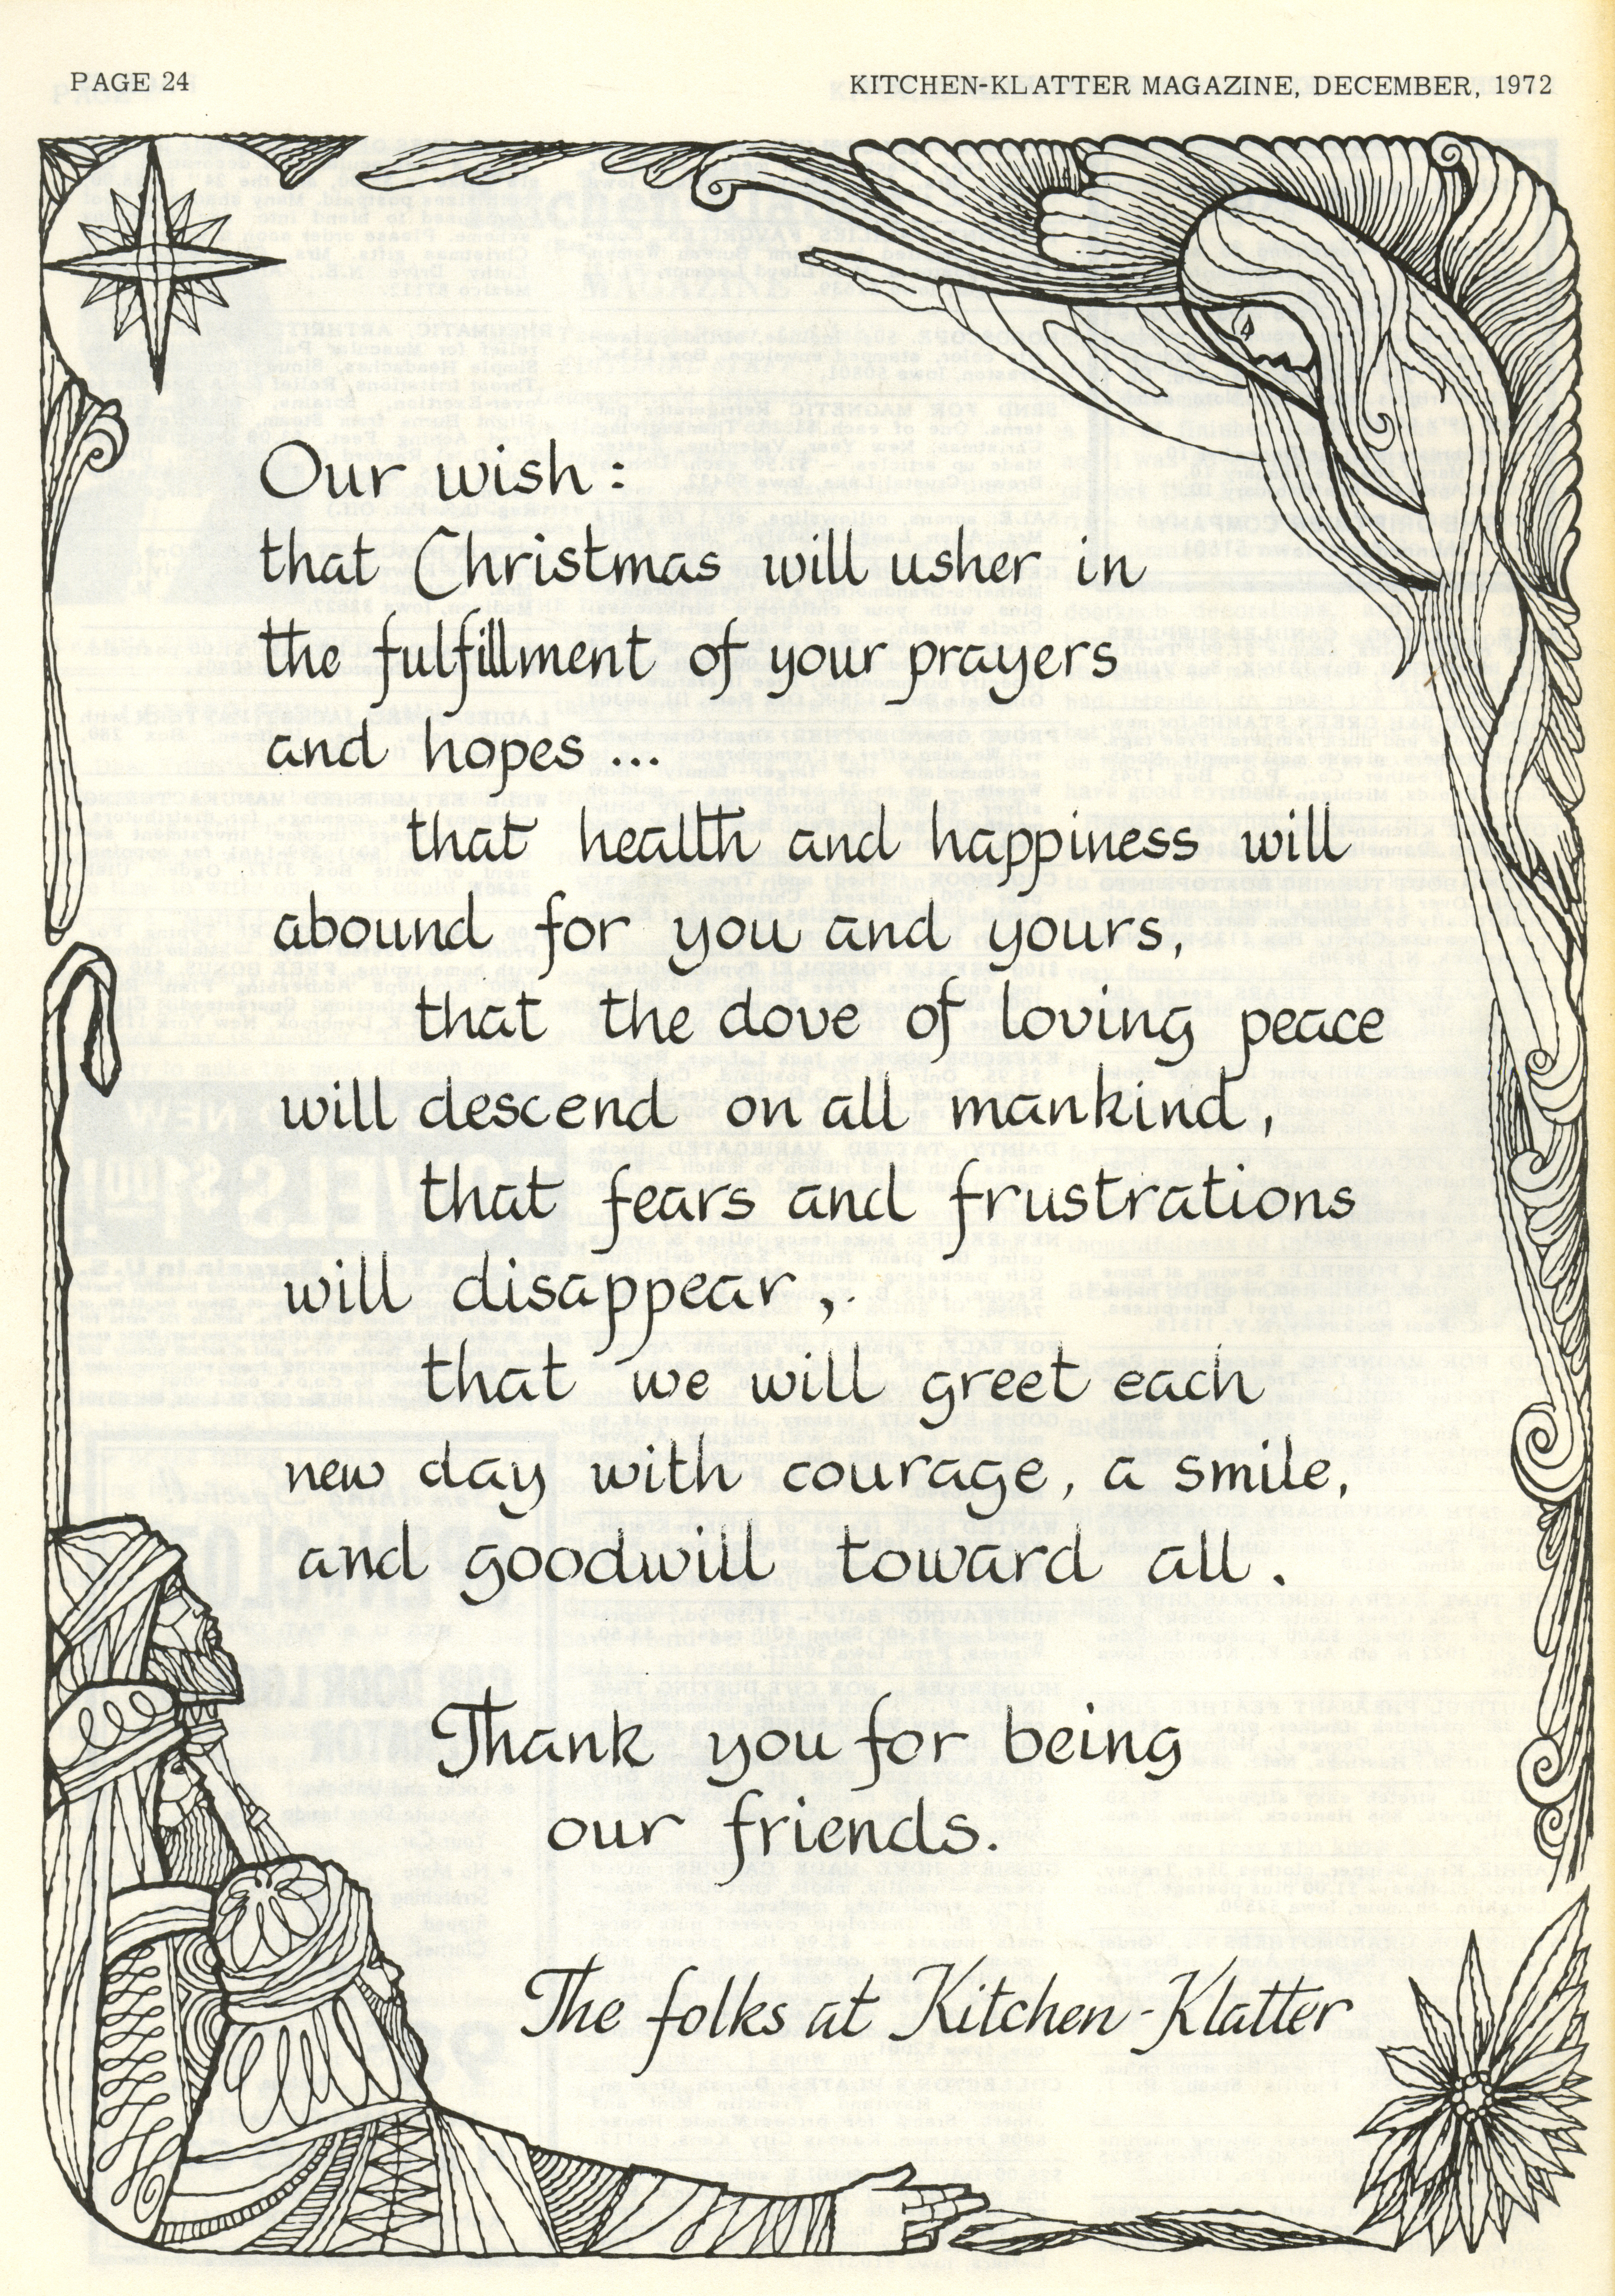 PAGE 24
KITCHEN-KLATTER MAGAZINE, DECEMBER, 1972
Our wish :
that Christmas will usher in
the fulfillment of your prayers
and hopes ...
that health and happiness will
abound for you and yours,
that the dove of loving peace
will descend on all mankind,
that fears and frustrations
will disappear,
that we will greet each
new day with courage, a smile,
and goodwill toward all.
Thank you for being
our friends.
The folks at Kitchen-Klatter